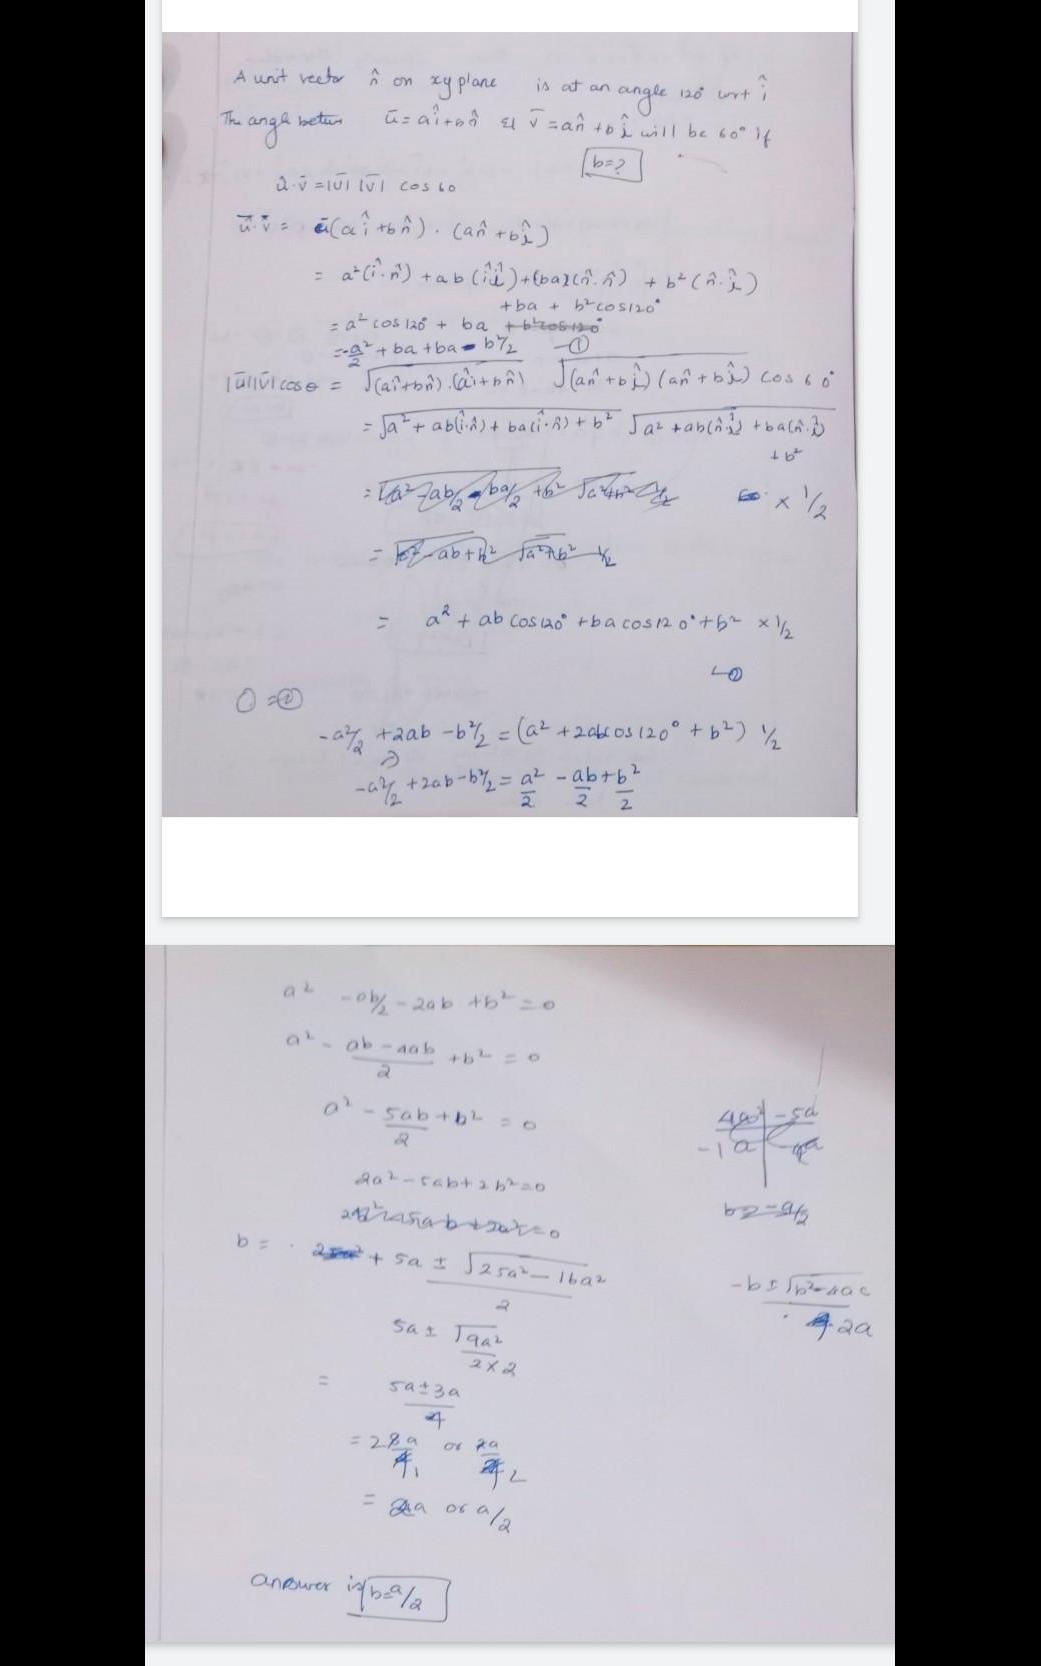 A unit vector n̂ on xy plane is at an angle 120° wrt î
The angle betwn ū = aî+bn̂ & v̄ = an̂ + bî will be 60° if
b=?
û·v̄ = |ū| |v̄| cos 60
ū·v̄ = (aî+bn̂) · (an̂ + bî)
= a²(î·n̂) + ab(î·î) + (ba)(n̂·n̂) + b²(n̂·î)
+ba + b²cos120°
= a² cos 120° + ba + b²cos120°
= -a²/2 + ba + ba - b²/2 —①
|ū||v̄| cosθ = √(aî+bn̂)·(aî+bn̂) √(an̂+bî)(an̂+bî) cos 60°
= √a² + ab(î·n̂) + ba(î·n̂) + b² √a² + ab(n̂·î) + ba(n̂·î)
+ b²
= √a² - ab/2 - ba/2 + b² × 1/2
= a² + ab cos120° + ba cos120° + b² × 1/2
↳②
① = ②
-a²/2 + 2ab - b²/2 = (a² + 2ab cos120° + b²) 1/2
⇒
-a²/2 + 2ab - b²/2 = a²/2 - ab/2 + b²/2
a² - ab/2 - 2ab + b² = 0
a² - ab - 4ab/2 + b² = 0
a² - 5ab/2 + b² = 0
4a² | -5a
-1a
2a² - 5ab + 2b² = 0
b = a/2
b = + 5a ± √25a² - 16a² / 2
-b ± √b² - 4ac / 2a
5a ± √9a² / 2×2
= 5a ± 3a / 4
= 2 8a/4 1 or 2a/4 2
= 2a or a/2
answer is b=a/2